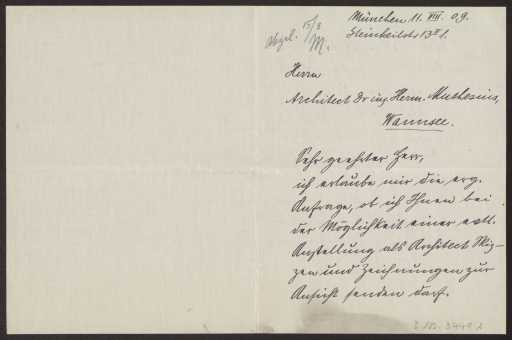 München 11. VIII. 09.
Steinheilstr 13 II l.
abgel. 15/8
M.
Herrn
Architect Dr ing. Herm. Muthesius,
Wannsee.
Sehr geehrter Herr,
ich erlaube mir die erg.
Anfrage, ob ich Ihnen bei
der Möglichkeit einer evtl.
Anstellung als Architect Skiz-
zen und Zeichnungen zur
Ansicht senden darf.